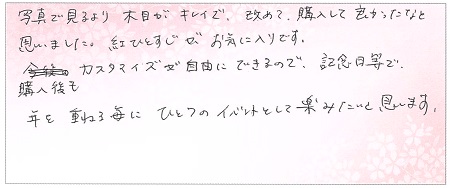 写真で見るより 木目が キレイで、改めて、購入して良かったなと
思いました。紅ひとすじが お気に入りです。
カスタマイズが自由にできるので、記念日等で、
購入後も
年を 重ねる毎に ひとつのイベントとして楽みたいと思います。